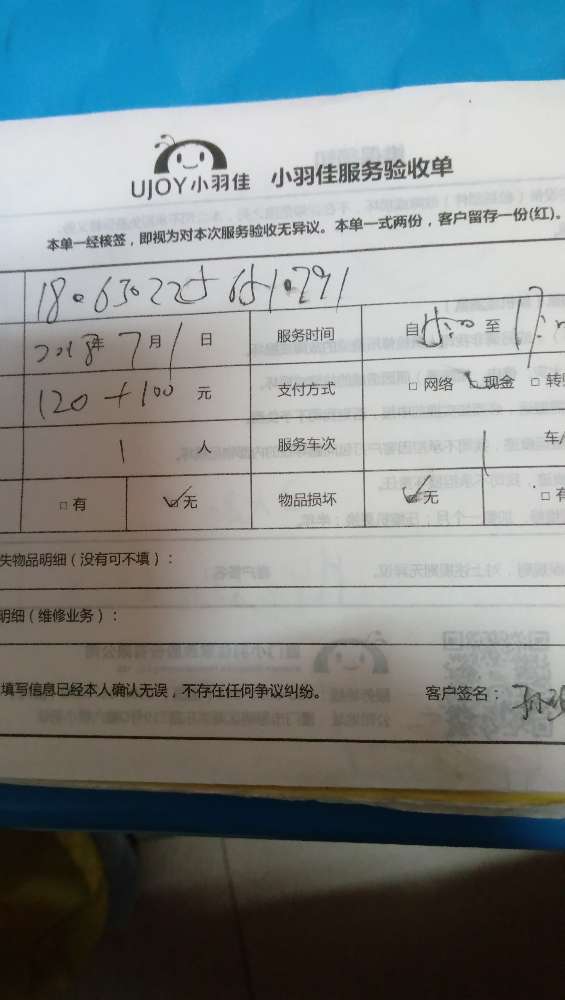 UJOY小羽佳 小羽佳服务验收单
本单一经核签，即视为对本次服务验收无异议。本单一式两份，客户留存一份(红)。
2018年 7月 1日 服务时间 自 至
120+100 元 支付方式 □ 网络 □ 现金 □ 转
1 人 服务车次 1 车
□ 有 □ 无 物品损坏 □ 无 □
失物品明细（没有可不填）：
明细（维修业务）：
填写信息已经本人确认无误，不存在任何争议纠纷。 客户签名：